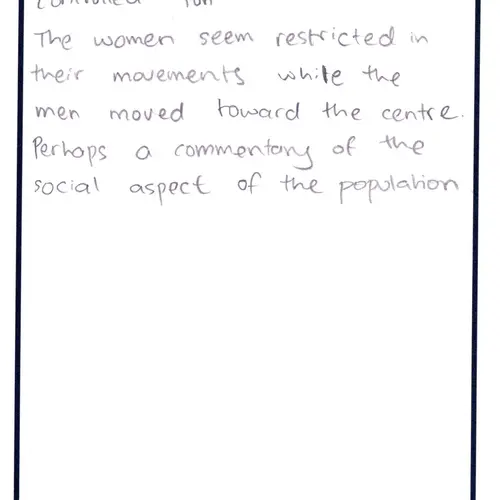 The women seem restricted in
their movements while the
men moved toward the centre.
Perhaps a commentary of the
social aspect of the population